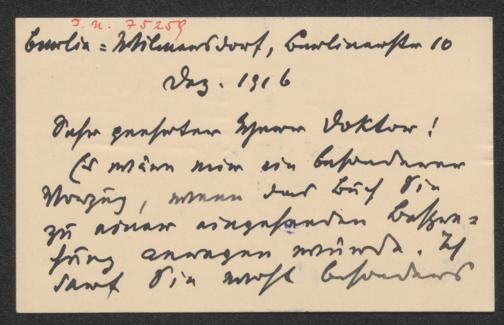 J. N. 75259
Berlin=Wilmersdorf, Berlinerstr 10
Dez. 1916
Sehr geehrter Herr Doktor!
Es wäre mir ein besonderer
Vorzug, wenn das Buch Sie
zu einer eingehenden Bespre=
chung anregen würde. Ich
darf Sie wohl besonders